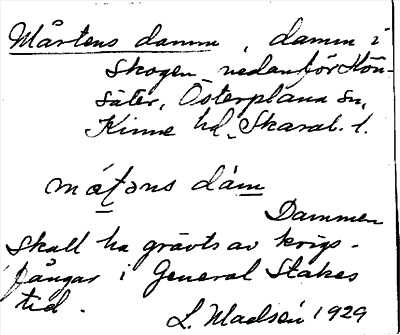 Mårtens damm, damm i
skogen nedanför Hön-
säter, Österplana sn,
Kinne hd, Skarab. l.
mátəns dám
Dammen
skall ha grävts av krigs-
fångar i General Stakes
tid.
L. Madsén 1929